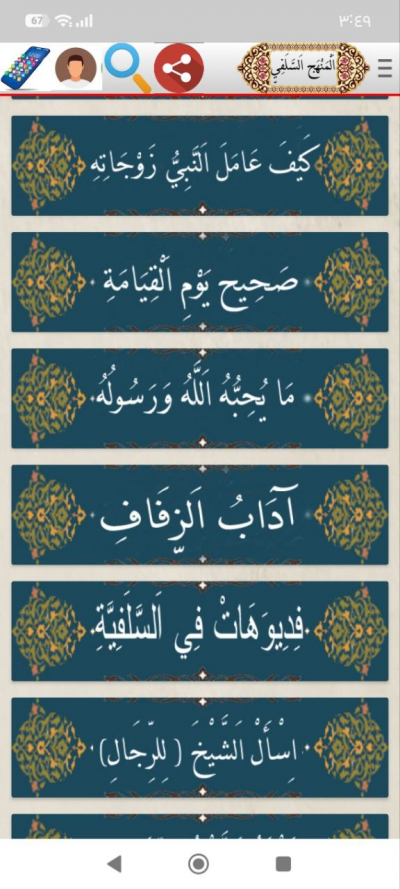 67
٣:٤٩
المَنْهَج السَّلَفِي
كَيْفَ عَامَلَ النَّبِيُّ زَوْجَاتِهِ
صَحِيح يَوْمِ الْقِيَامَةِ
مَا يُحِبُّهُ اللَّهُ وَرَسُولُهُ
آدَابُ الزِّفَافِ
فِدِيوَهَاتْ فِي السَّلَفِيَّةِ
اِسْأَلْ الشَّيْخَ (لِلرِّجَالِ)